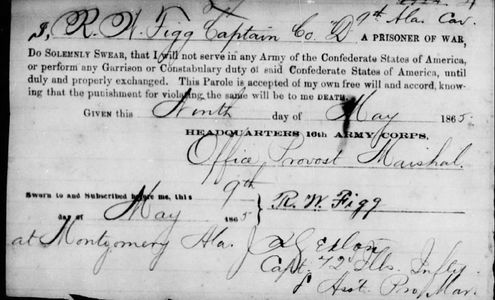 I, R. W. Figg Captain Co. D 7th Ala. Cav.
A PRISONER OF WAR,
Do SOLEMNLY SWEAR, that I will not serve in any Army of the Confederate States of America,
or perform any Garrison or Constabulary duty of said Confederate States of America, until
duly and properly exchanged. This Parole is accepted of my own free will and accord, know-
ing that the punishment for violating the same will be to me DEATH.
GIVEN this Ninth day of May 1865
HEADQUARTERS 16th ARMY CORPS,
Office Provost Marshal.
Sworn to and Subscribed before me, this 9th
day of May 1865
R. W. Figg
at Montgomery Ala.
Capt. 72 Ills. Infty.
Asst. Pro. Mar.